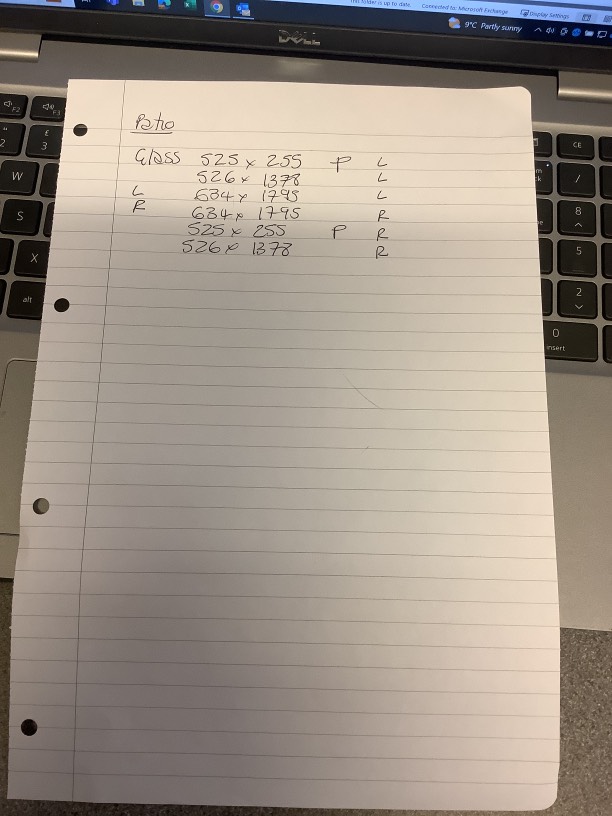 This folder is up to date. Connected to: Microsoft Exchange Display Settings
9°C Partly sunny
DELL
Patio
Glass 525 x 255 P L
526 x 1378 L
L 634 x 1795 L
R 634 x 1795 R
525 x 255 P R
526 x 1378 R
F2 F3
2 £ 3
W
S
X
alt
CE
/
8
5
2
0
insert